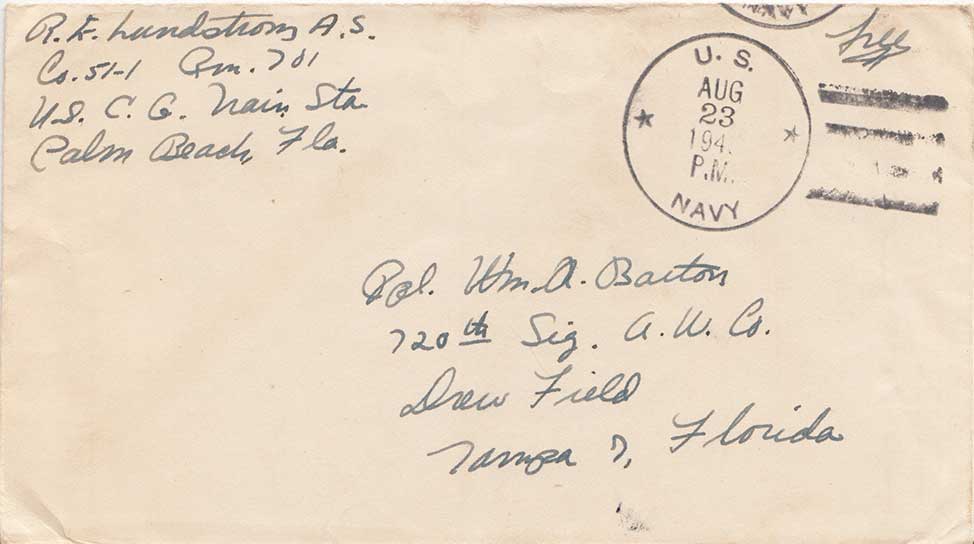 R. E. Lundstrom A.S.
Co. 51-1 Rm. 701
U.S. C. G. Train. Sta.
Palm Beach, Fla.
free
U. S.
AUG
23
194
P.M.
NAVY
NAVY
Wm. A. Barton
720th Sig. A. W. Co.
Drew Field
Tampa 7, Florida